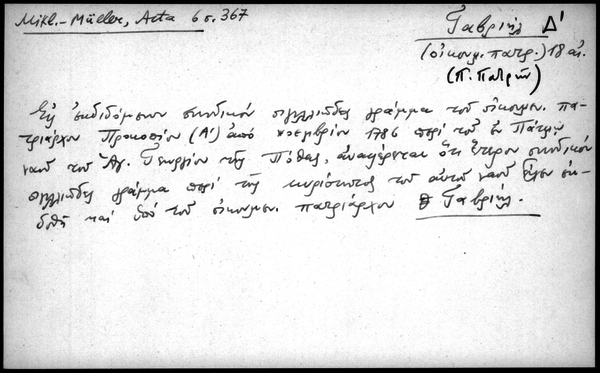 Mikl.-Müller, Acta 6 σ. 367
Γαβριήλ Δ'
(οἰκουμ. πατρ.) 18 αἰ.
(Π. Πατρῶν)
Εἰς ἐκδιδόμενον συνοδικόν σιγιλλιῶδες γράμμα τοῦ οἰκουμεν. πα-
τριάρχου Προκοπίου (Α') ἀπό νοεμβρίου 1786 περί τοῦ ἐν Πάτμῳ
ναοῦ τοῦ Ἁγ. Γεωργίου τῆς ἀναφέρεται ὅτι ἕτερον συνοδικόν
σιγιλλιῶδες γράμμα περί τῆς κυριότητος τοῦ αὐτοῦ ναοῦ εἶχεν ἐκ-
δοθῆ καί ὑπό τοῦ οἰκουμεν. πατριάρχου Γαβριήλ.